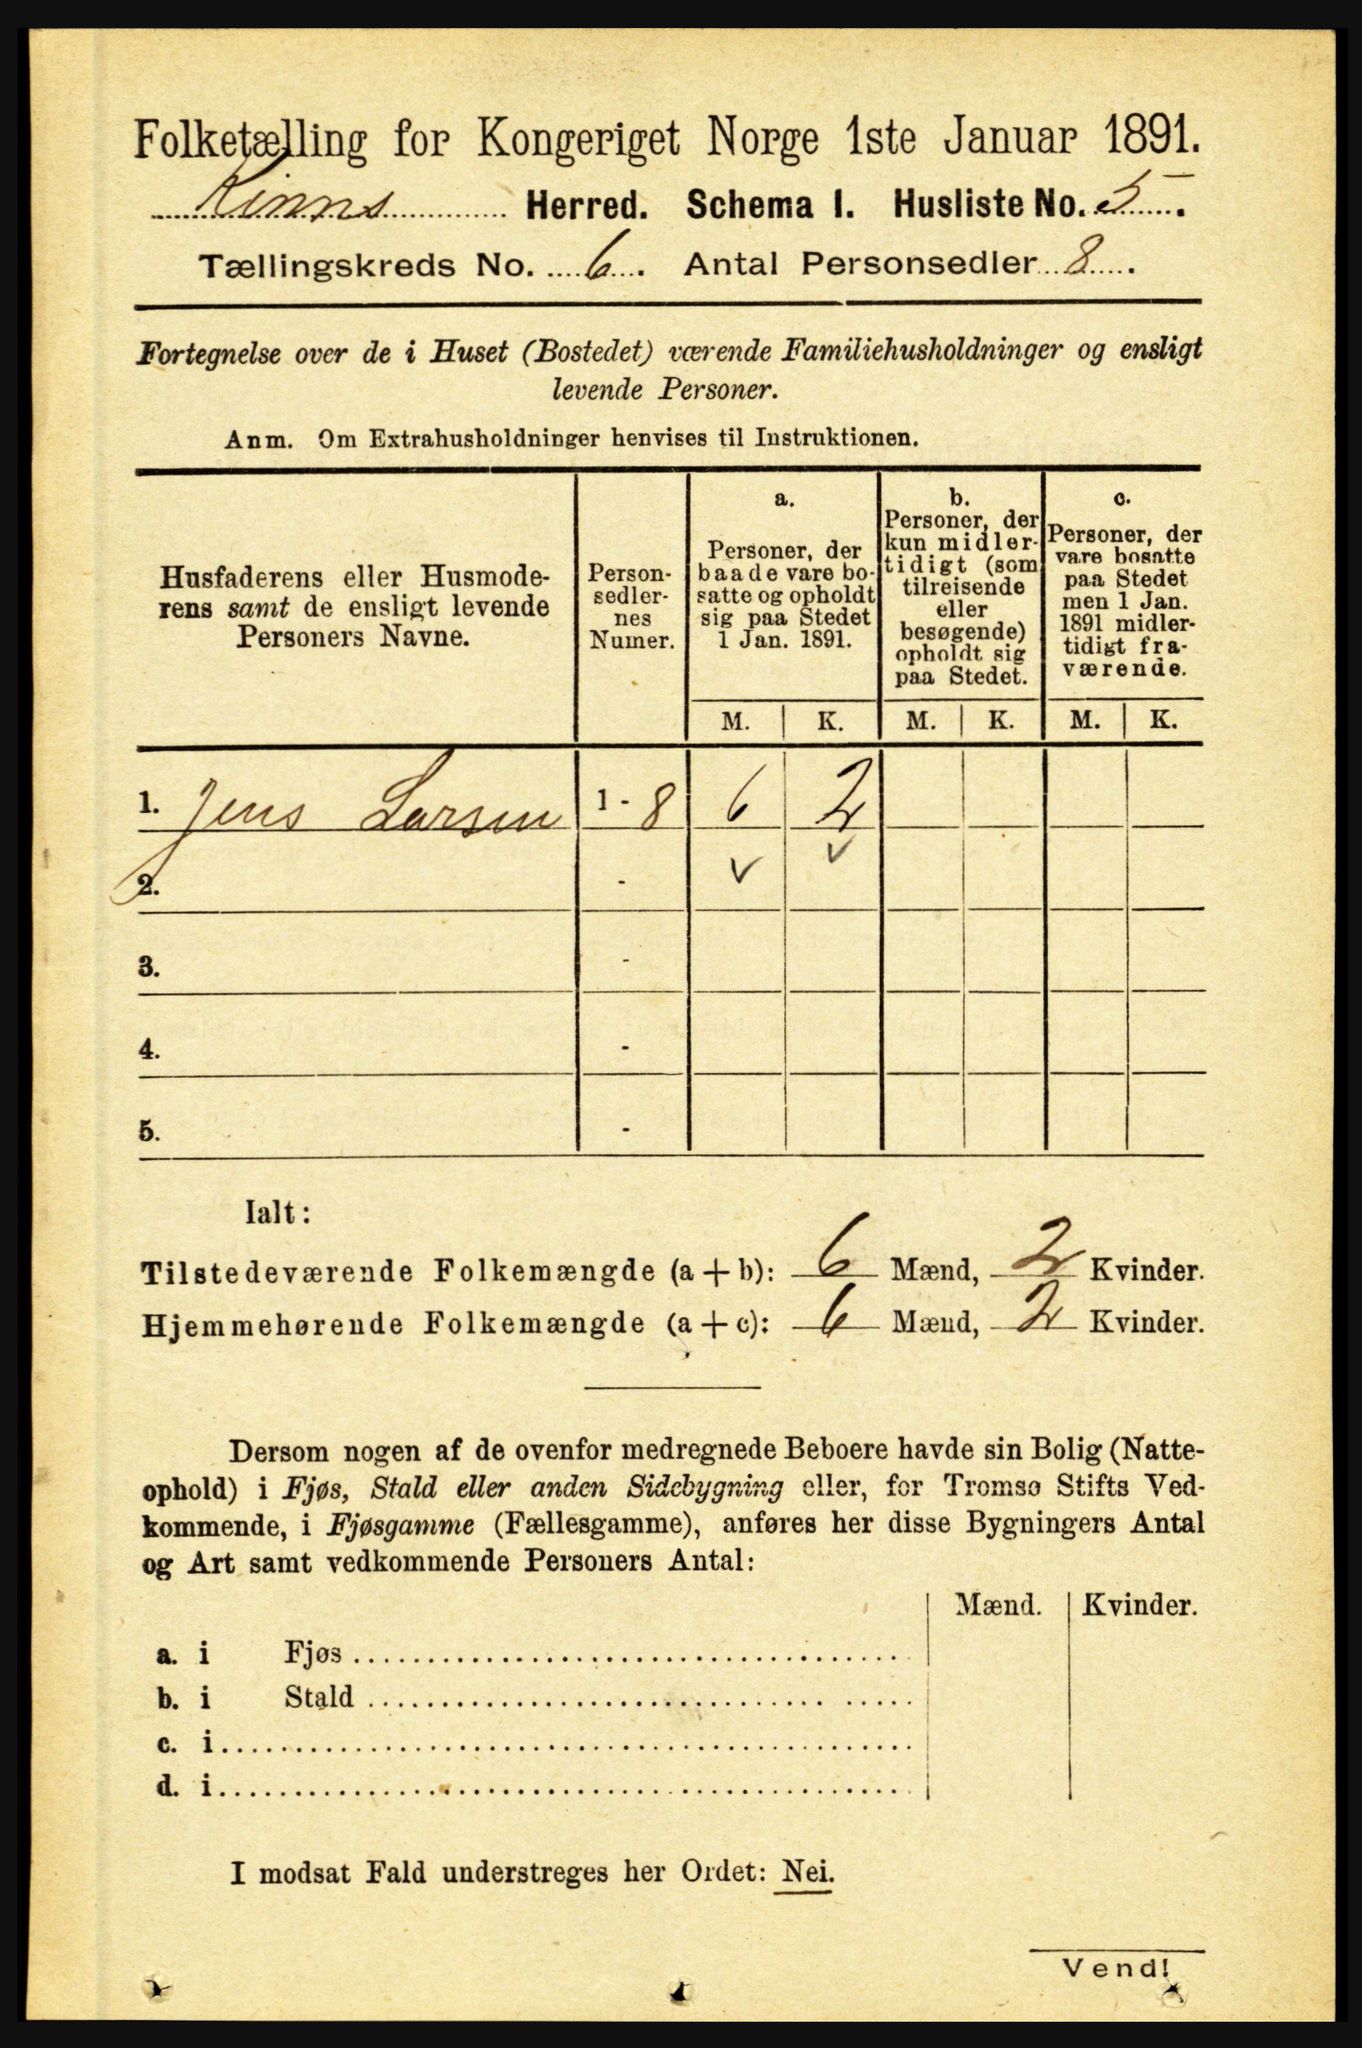 Folketælling for Kongeriget Norge 1ste Januar 1891.
Kinns Herred. Schema I. Husliste No. 5.
Tællingskreds No. 6. Antal Personsedler 8.
Fortegnelse over de i Huset (Bostedet) værende Familiehusholdninger og ensligt
levende Personer.
Anm. Om Extrahusholdninger henvises til Instruktionen.
Husfaderens eller Husmode-
rens samt de ensligt levende
Personers Navne.
Person-
sedler-
nes
Numer.
a.
Personer, der
baade vare bo-
satte og opholdt
sig paa Stedet
1 Jan. 1891.
b.
Personer, der
kun midler-
tidigt (som
tilreisende
eller
besøgende)
opholdt sig
paa Stedet.
c.
Personer, der
vare bosatte
paa Stedet
men 1 Jan.
1891 midler-
tidigt fra-
værende.
M. K. M. K. M. K.
1. Jens Larsen 1 - 8 6 2
2. - ✓ ✓
3. -
4. -
5. -
Ialt:
Tilstedeværende Folkemængde (a + b): 6 Mænd, 2 Kvinder.
Hjemmehørende Folkemængde (a + c): 6 Mænd, 2 Kvinder.
Dersom nogen af de ovenfor medregnede Beboere havde sin Bolig (Natte-
ophold) i Fjøs, Stald eller anden Sidebygning eller, for Tromsø Stifts Ved-
kommende, i Fjøsgamme (Fællesgamme), anføres her disse Bygningers Antal
og Art samt vedkommende Personers Antal:
Mænd. Kvinder.
a. i Fjøs
b. i Stald
c. i
d. i
I modsat Fald understreges her Ordet: Nei.
Vend!